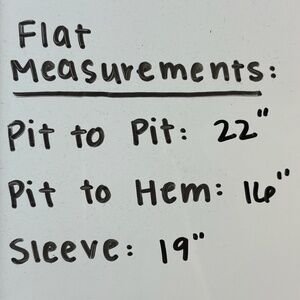 Flat
Measurements:
Pit to Pit: 22"
Pit to Hem: 16"
Sleeve: 19"